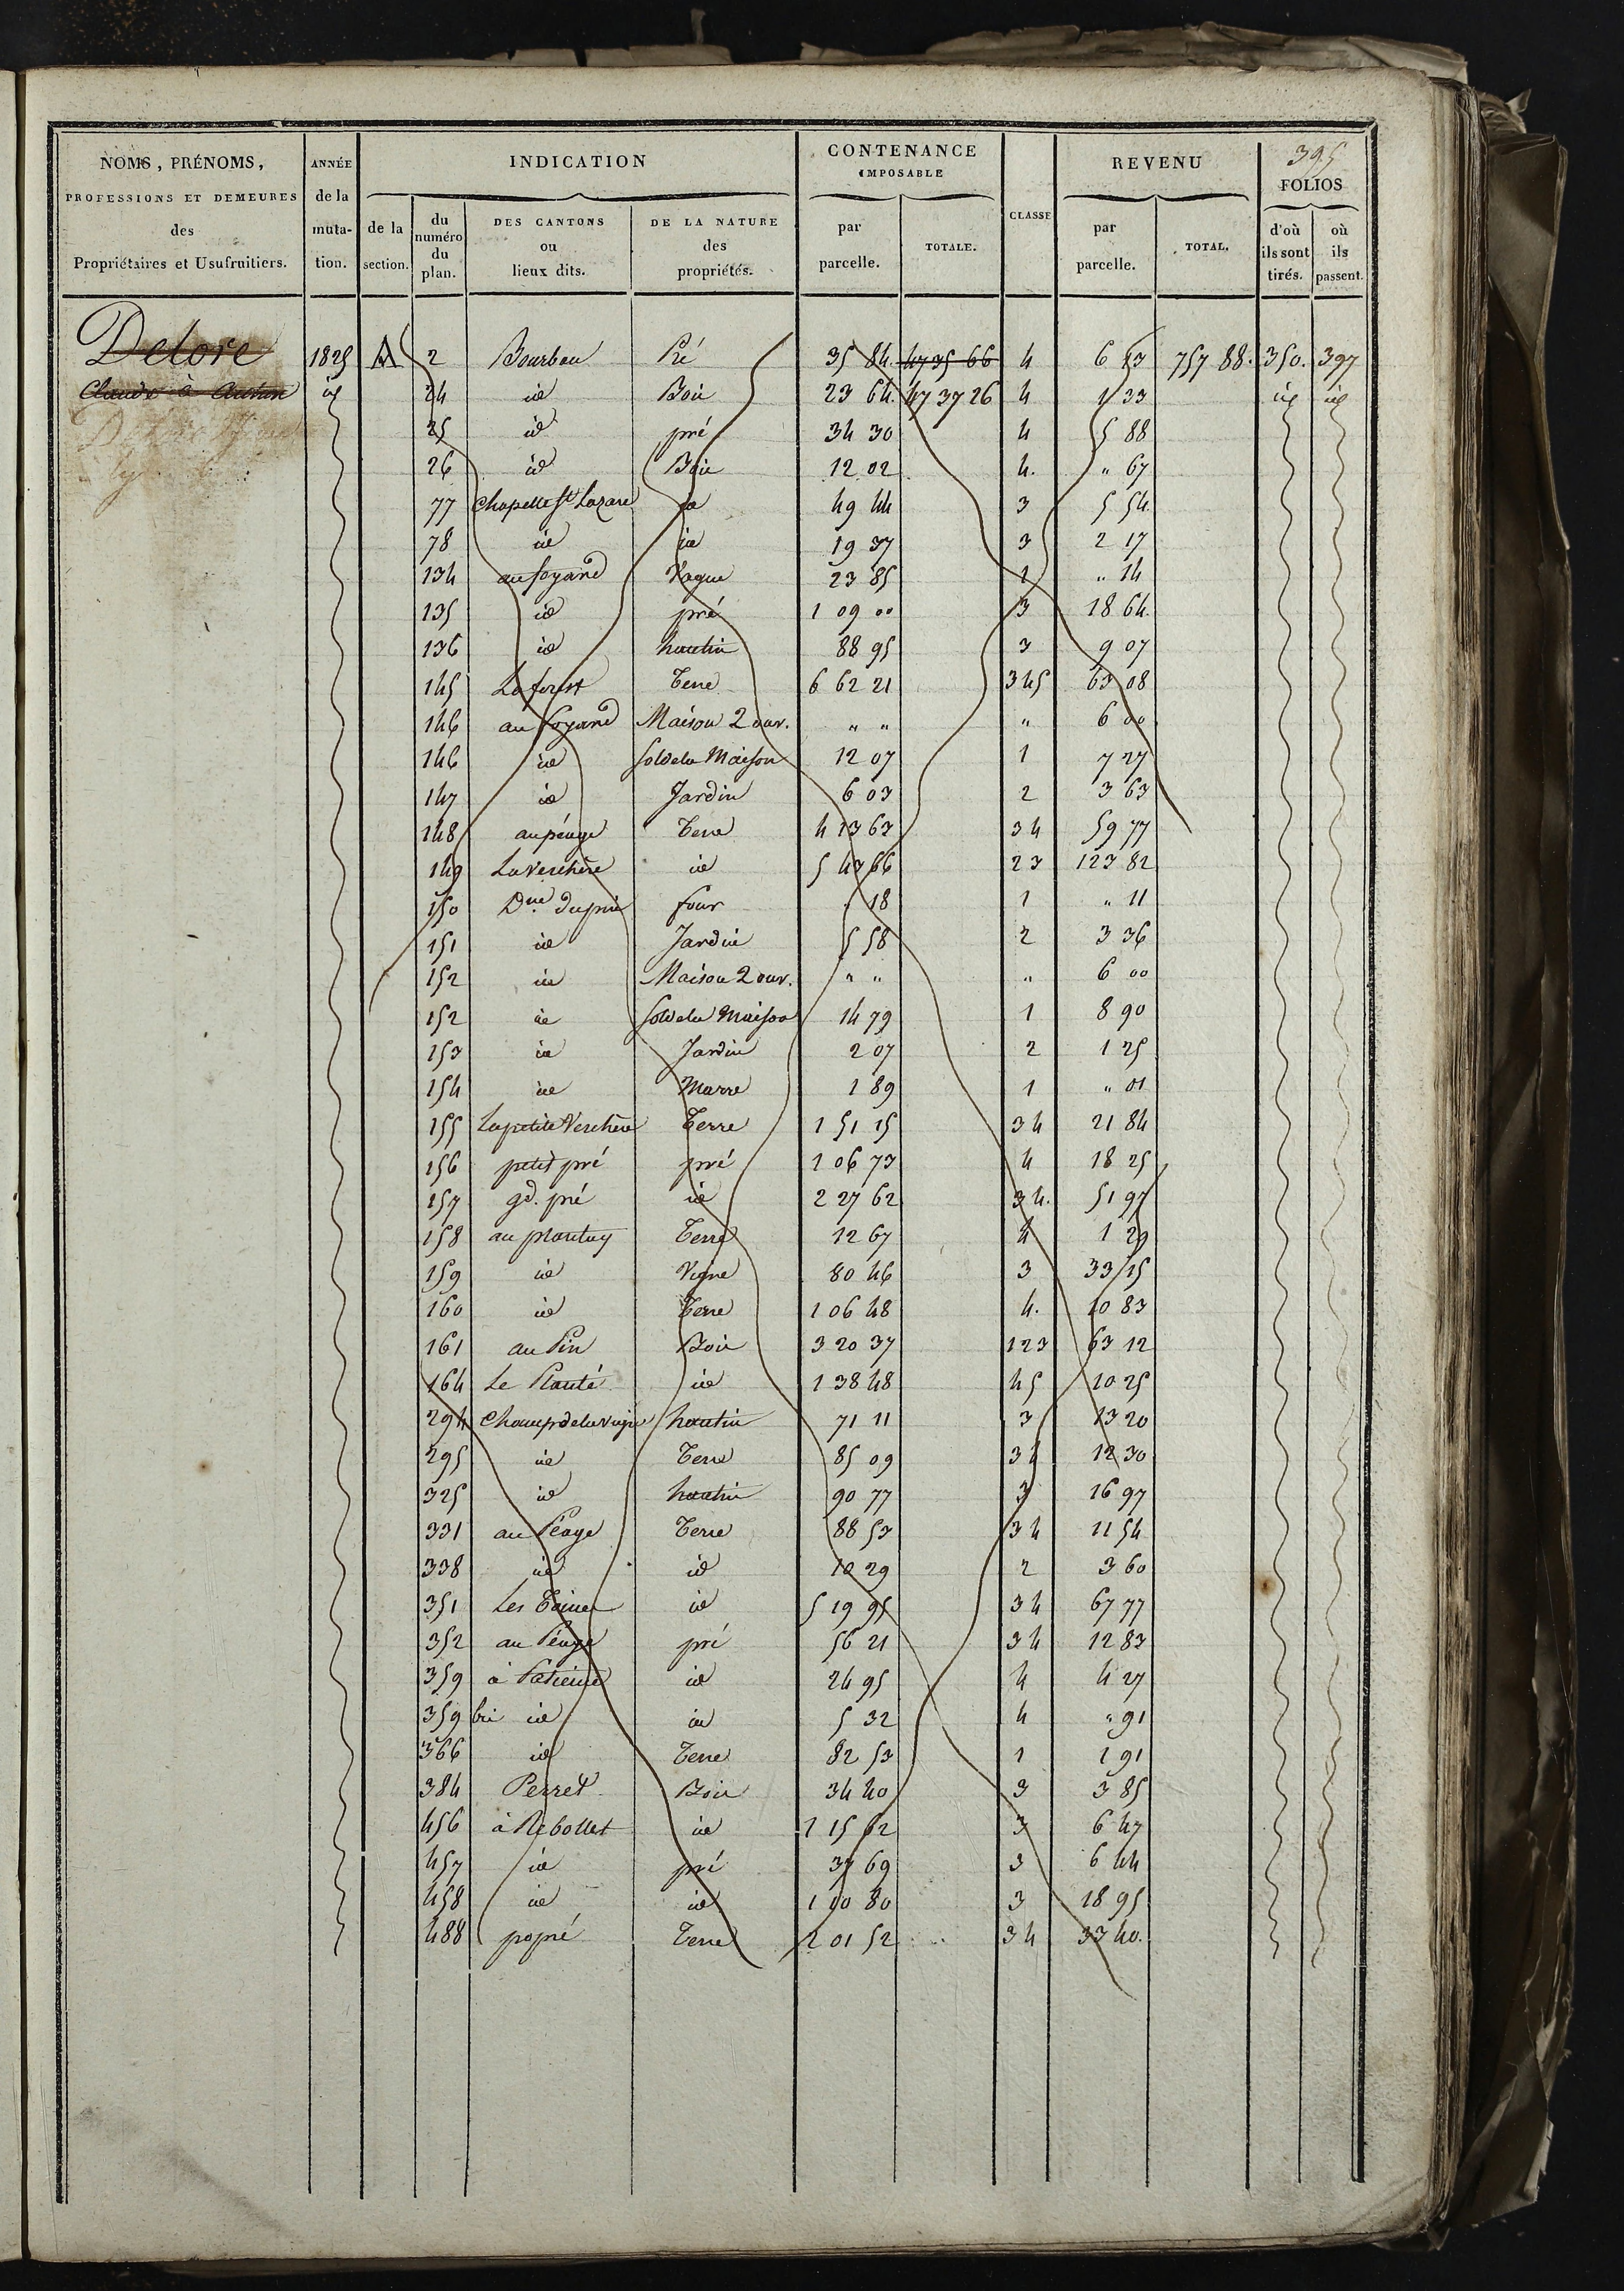 395
NOMS, PRÉNOMS, PROFESSIONS ET DEMEURES des Propriétaires et Usufruitiers.
ANNÉE de la muta- tion.
INDICATION
de la section.
du numéro du plan.
DES CANTONS ou lieux dits.
DE LA NATURE des propriétés.
CONTENANCE IMPOSABLE
par parcelle.
TOTALE.
CLASSE
REVENU
par parcelle.
TOTAL.
FOLIOS
d'où ils sont tirés.
où ils passent.
Delore 1825 A 2 Bourbon Pré 35 84 4735 66 4 6 13 757 88. 350. 397
Claude à Autun id 24 id Bois 23 64. 47 37 26 4 1 33 id id
25 id pré 34 30 4 5 88
26 id Bois 12 02 4. " 67
77 Chapelle St Lazare id 49 44 3 5 54
78 id id 19 37 3 2 17
134 au foyard Vague 23 85 1 " 14
135 id pré 1 09 00 3 18 64.
136 id hautin 88 95 3 9 07
145 La forest Terre 6 62 21 345 63 08
146 au foyard Maison 2 ouv. " " " 6 00
146 id sol de la Maison 12 07 1 7 27
147 id Jardin 6 03 2 3 63
148 au péage Terre 4 13 63 34 59 77
149 La Verchère id 5 43 66 23 123 82
150 Dne du pin four " 18 1 " 11
151 id Jardin 5 58 2 3 36
152 id Maison 2 ouv. " " " 6 00
152 id sol de la Maison 14 79 1 8 90
153 id Jardin 2 07 2 1 25
154 id Marre 1 89 1 " 01
155 La petite Verchère Terre 1 51 15 34 21 84
156 petit pré pré 1 06 73 4 18 25
157 gd. pré id 2 27 62 34. 51 97
158 au plantay Terre 12 67 4 1 29
159 id Vigne 80 46 3 33 15
160 id Terre 1 06 48 4. 10 83
161 au Pin Bois 3 20 37 123 63 12
164 Le Planté id 1 38 48 45 10 25
294 Champ de la vigne hautin 71 11 3 13 20
295 id Terre 85 09 34 12 30
325 id hautin 90 77 3 16 97
331 au Péage Terre 88 53 34 11 54
338 id id 10 29 2 3 60
351 Les id 5 19 95 34 67 77
352 au Péage pré 56 21 34 12 83
359 à id 24 95 4 4 27
359 bis id id 5 32 4 " 91
366 id Terre 82 53 1 1 91
384 Perret Bois 34 40 3 3 85
456 à Rebollet id 1 15 62 3 6 47
457 id pré 37 69 3 6 44
458 id id 1 10 80 3 18 95
488 popné Terre 2 01 52 34 33 40.